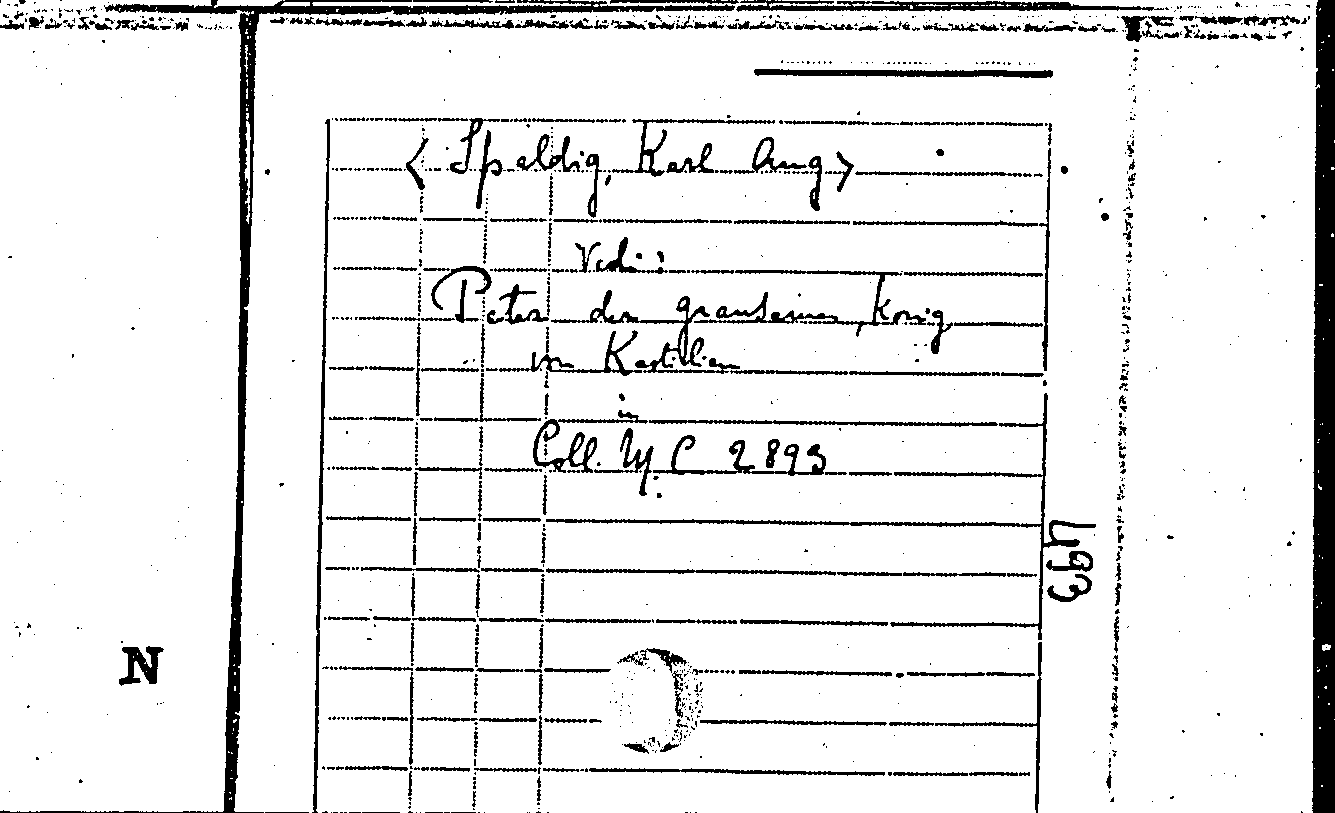 < Spaldig, Karl Aug >
Vedi:
Peter der grausame, König
von Kastilien
in
Coll. M. C 2893
493
N